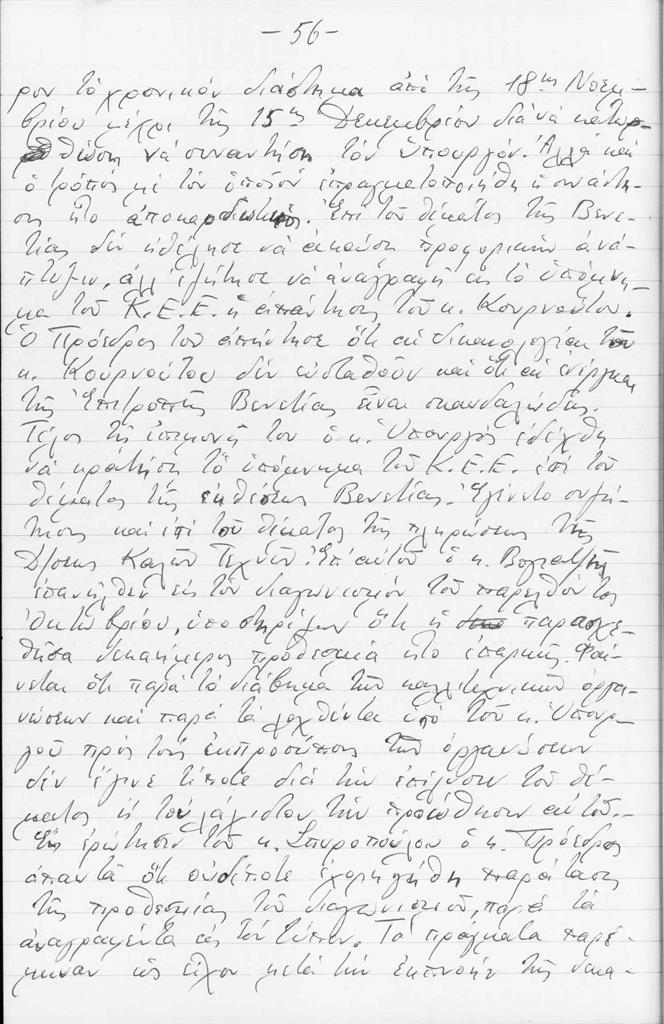 -56-
ρον τὸ χρονικὸν διάστημα ἀπὸ τῆς 18ης Νοεμ-
βρίου μέχρι τῆς 15ης Δεκεμβρίου διὰ νὰ κατορ-
θώση νὰ συναντήση τὸν Ὑπουργόν. Ἀλλὰ καὶ
ὁ τρόπος μὲ τὸν ὁποῖον ἐπραγματοποιήθη ἡ συνάντη-
ση ἦτο ἀποκαρδιωτικός. Ἐπὶ τοῦ θέματος τῆς Βενε-
τίας δὲν ἠθέλησε νὰ ἀκούση προφορικὴν ἀνά-
πτυξιν, ἀλλ' ἐζήτησε νὰ ἀναγραφῆ εἰς τὸ ὑπόμνη-
μα τοῦ Κ.Ε.Ε. ἡ ἀπάντησις τοῦ κ. Κουρνούτου.
Ὁ Πρόεδρος τοῦ ἀπήντησε ὅτι αἱ δικαιολογίαι τοῦ
κ. Κουρνούτου δὲν εὐσταθοῦν καὶ ὅτι αἱ ἐνέργειαι
τῆς Ἐπιτροπῆς Βενετίας εἶναι σκανδαλώδεις.
Τέλος τῇ ἐπιμονῇ του ὁ κ. Ὑπουργὸς ἐδέχθη
νὰ κρατήση τὸ ὑπόμνημα τοῦ Κ.Ε.Ε. ἐπὶ τοῦ
θέματος τῆς ἐκθέσεως Βενετίας. Ἐγένετο συζή-
τησις καὶ ἐπὶ τοῦ θέματος τῆς πληρώσεως τῆς
Δ/σεως Καλῶν Τεχνῶν. Ἐπ' αὐτοῦ ὁ κ. Βογιατζῆς
ἐπανῆλθεν εἰς τὸν διαγωνισμὸν τοῦ παρελθόντος
Ὀκτωβρίου, ὑποστηρίξων ὅτι ἡ παρασχε-
θῆσα δεκαήμερος προθεσμία ἦτο ἐπαρκής. Φαί-
νεται ὅτι παρὰ τὸ διάβημα τῶν καλλιτεχνικῶν ὀργα-
νώσεων καὶ παρὰ τὰ λεχθέντα ὑπὸ τοῦ κ. Ὑπουρ-
γοῦ πρὸς τοὺς ἐκπροσώπους τῶν ὀργανώσεων
δὲν ἔγινε τίποτε διὰ τὴν ἐπίλυσιν τοῦ θέ-
ματος ἢ τοὐλάχιστον τὴν προώθησιν αὐτοῦ.-
Εἰς ἐρώτησιν τοῦ κ. Σπυροπούλου ὁ κ. Πρόεδρος
ἀπαντᾶ ὅτι οὐδέποτε ἐχορηγήθη παράτασις
τῆς προθεσμίας τοῦ διαγωνισμοῦ, παρὰ τὰ
ἀναγραφέντα εἰς τὸν τύπον. Τὰ πράγματα παρέ-
μειναν ὡς εἶχον μετὰ τὴν ἐκπνοὴν τῆς δεκα-